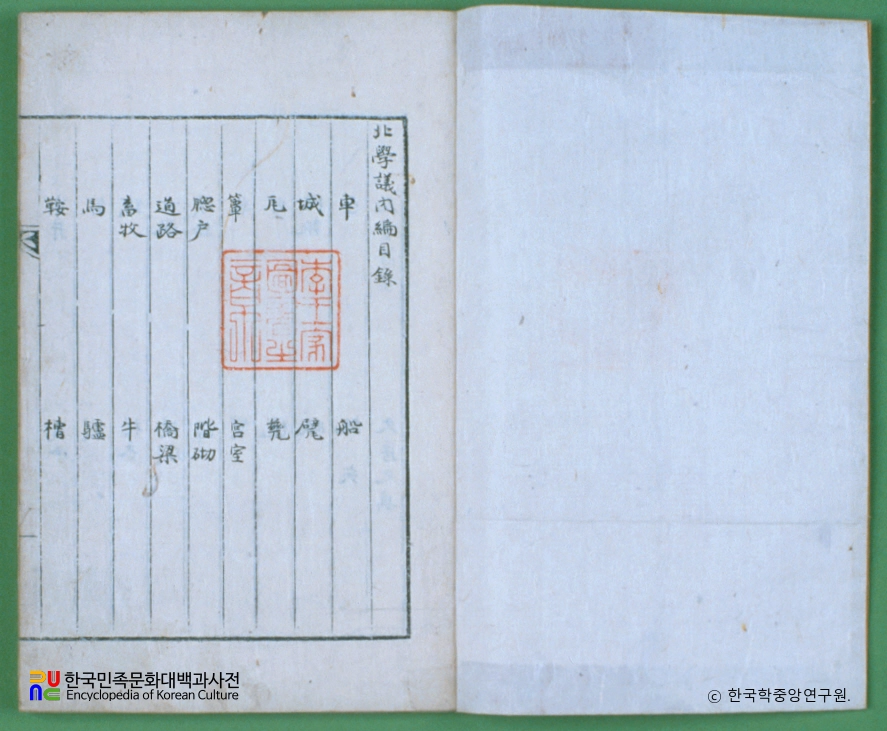 北學議內編目錄
車 船
城 甓
瓦 甕
簟 宮室
牕户 階砌
道路 橋梁
畜牧 牛
馬 驢
鞍 槽
한국민족문화대백과사전
Encyclopedia of Korean Culture
© 한국학중앙연구원.